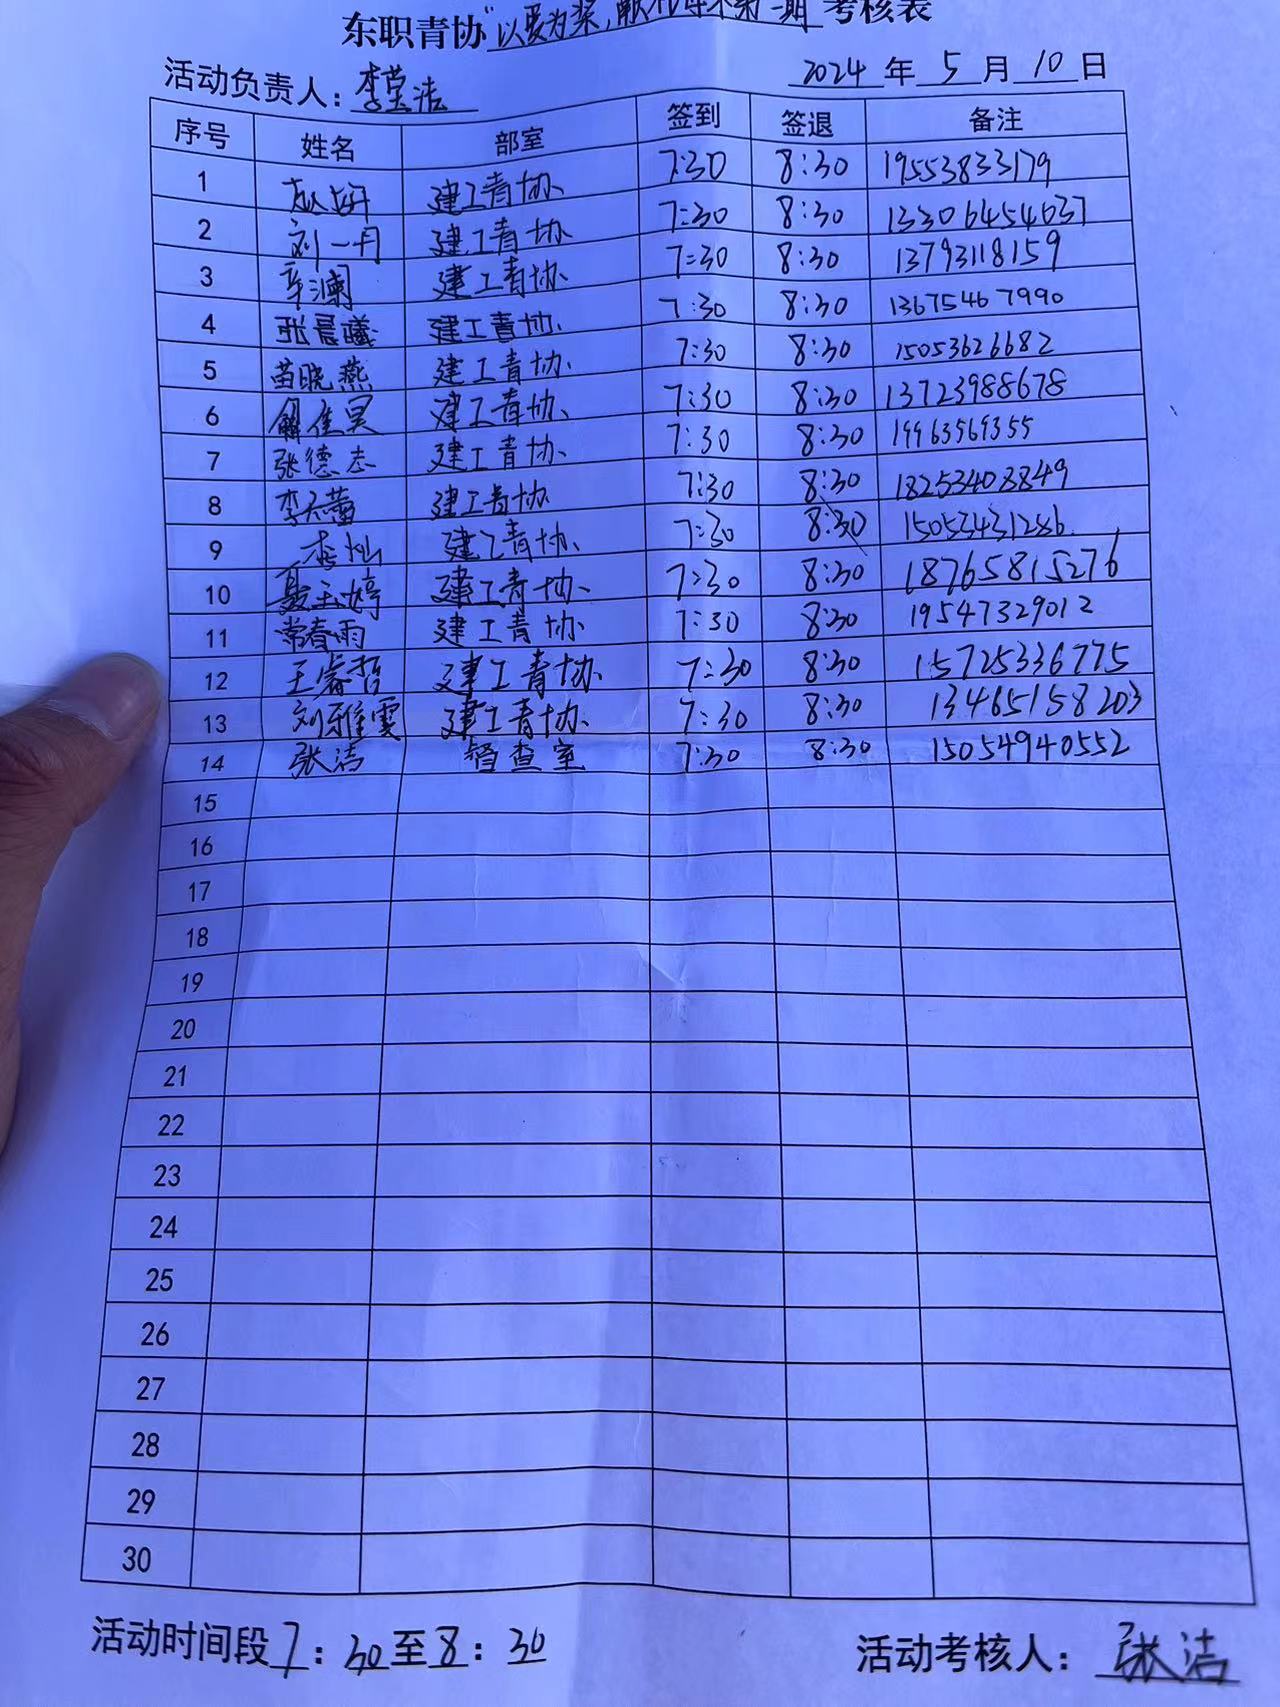 东职青协"以爱为桨, 第一期 考核表
活动负责人: 李莹洁 2024 年 5 月 10 日
序号 姓名 部室 签到 签退 备注
1 赵妍 建工青协 7:30 8:30 19553833179
2 刘一丹 建工青协 7:30 8:30 13306454637
3 辛澜 建工青协 7:30 8:30 13793118159
4 张晨曦 建工青协 7:30 8:30 13675467990
5 苗晓燕 建工青协 7:30 8:30 15053626682
6 解佳昊 建工青协 7:30 8:30 13723988678
7 张德志 建工青协 7:30 8:30 19963569355
8 李天蕾 建工青协 7:30 8:30 18253403849
9 李灿 建工青协 7:30 8:30 15053431286
10 聂玉婷 建工青协 7:30 8:30 18765815276
11 常春雨 建工青协 7:30 8:30 19547329012
12 王睿哲 建工青协 7:30 8:30 15725336775
13 刘雅雯 建工青协 7:30 8:30 13465158203
14 张洁 督查室 7:30 8:30 15054940552
15
16
17
18
19
20
21
22
23
24
25
26
27
28
29
30
活动时间段7:30至8:30 活动考核人: 张洁